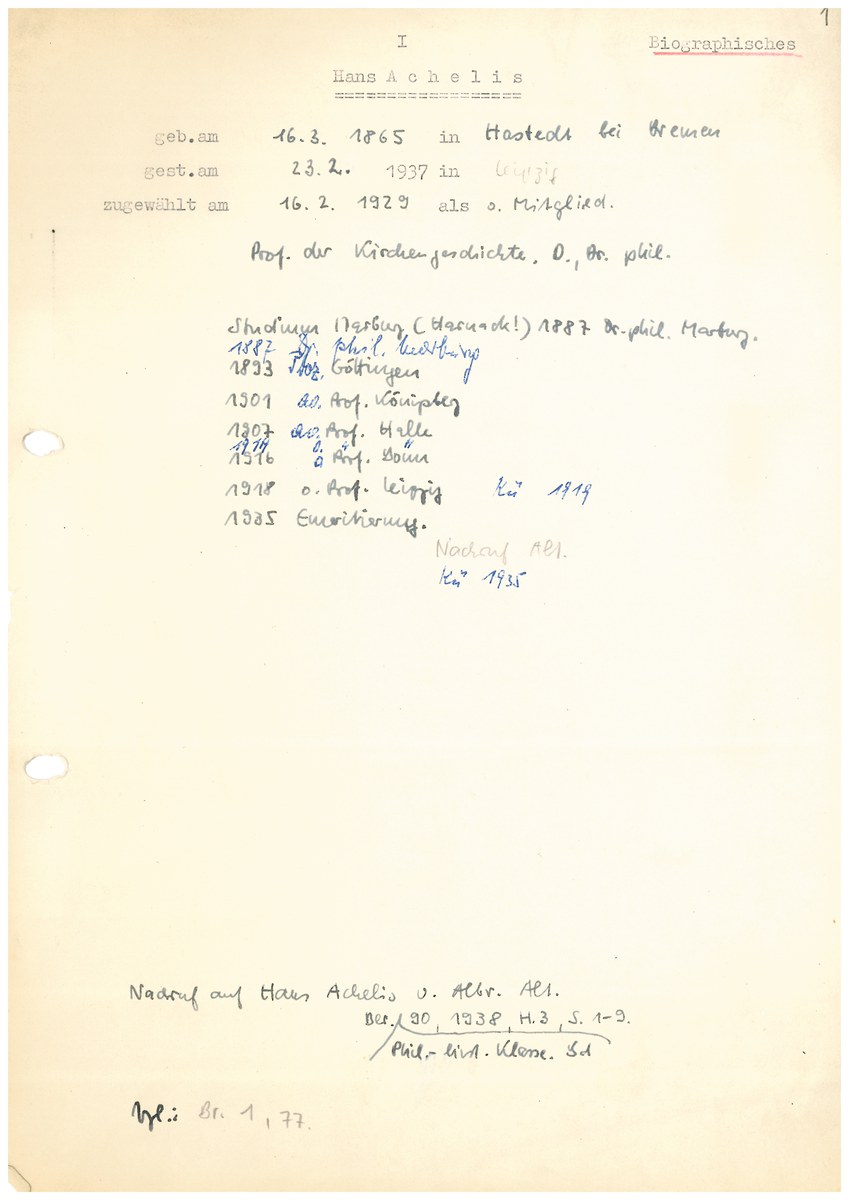 1
I
Biographisches
Hans A c h e l i s
geb.am 16.3. 1865 in Hastedt bei Bremen
gest.am 23.2. 1937 in Leipzig
zugewählt am 16.2. 1929 als o. Mitglied.
Prof. der Kirchengeschichte, D., Dr. phil.
Studium Marburg (Harnack!) 1887 Dr. phil. Marburg.
1887 Dr. phil. Marburg
1893 Göttingen
1901 ao. Prof. Königsberg
1907 ao. Prof. Halle
1914 o. " "
1916 o Prof. Bonn
1918 o. Prof. Leipzig Kü 1919
1935 Emeritierung.
Nachruf Alt.
Kü 1935
Nachruf auf Hans Achelis v. Albr. Alt.
Ber. 90, 1938, H.3, S. 1-9.
Phil.-hist. Klasse. Bd
Vgl.: Br. 1, 77.